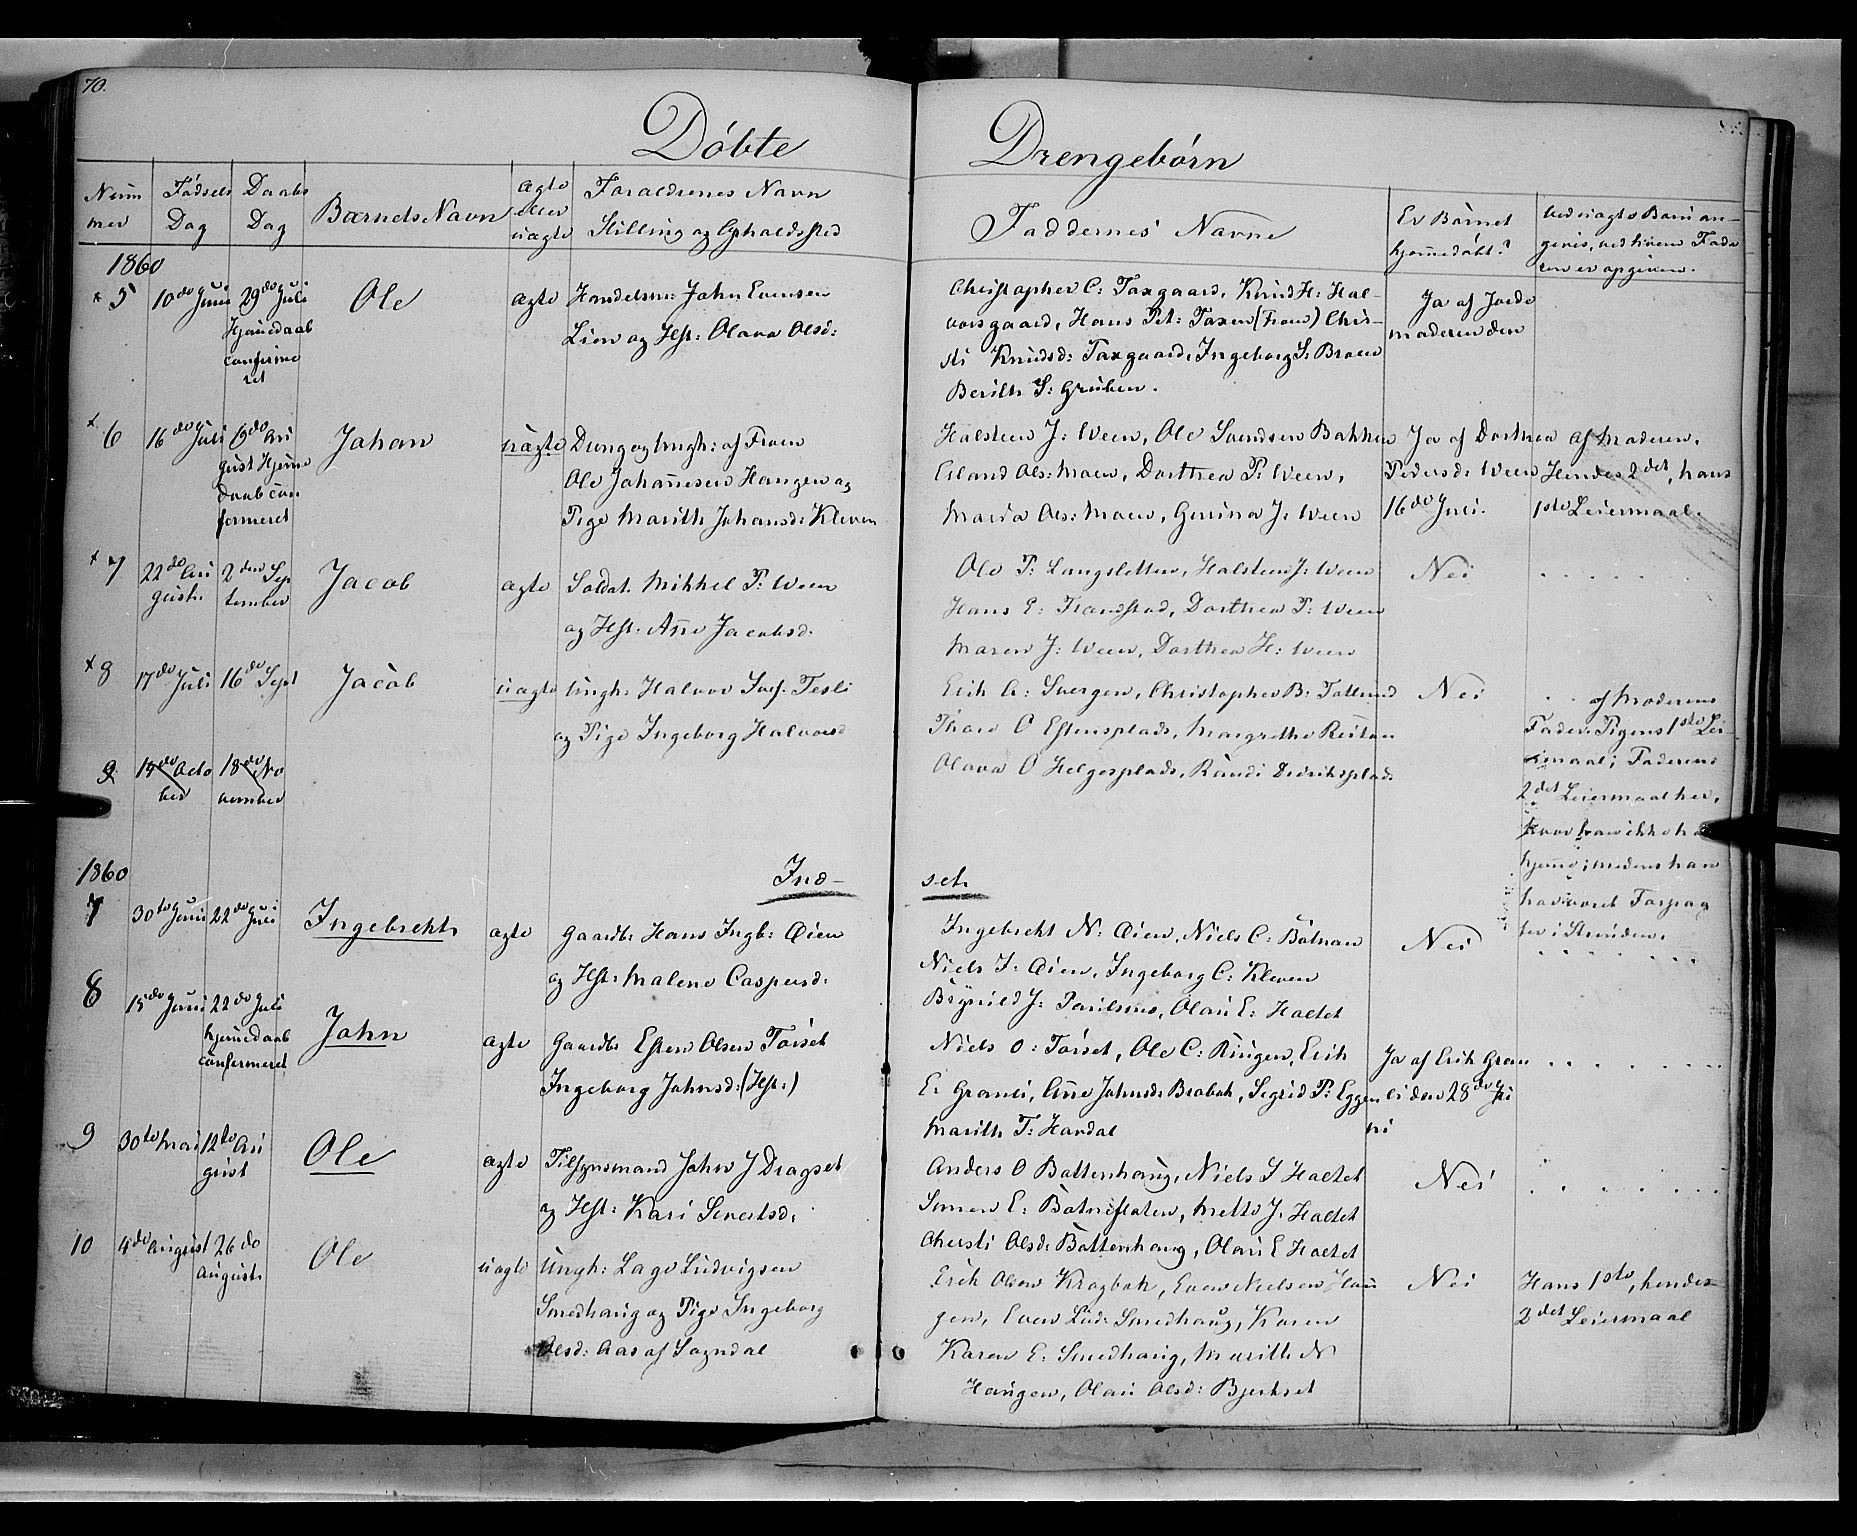 70.
Döbte Drengebörn
Num
mer
Födsels
Dag
Daabs
Dag
Barnets Navn
ægte
eller
uægte
Forældrenes Navn
Stilling og Opholdssted
Faddernes Navne
Er Barnet
hjemmedöbt?
Ved uægte Barn an-
gives, ved hvem Fade
ren er opgiven.
1860
5 10do Juni 29do Juli Ole ægte Handelsm: John Evensen
Hjemedaab
confirme
ret
Lien og Hst: Olava Olsd:
Christopher C: Taxgaard, Knud H: Hal-
vorsgaard, Hans Pet: Taxen (Fron) Chir-
sti Knudsd: Taxgaard, Ingeborg S: Broen
Berith S: Gruben.
Ja af Jorde
moderen den
6 16do Juli 19do Au
gust Hjeme
daab con
firmeret
Johan uægte Dreng og Ungk: af Froen
Ole Johannesen Haugen og
Pige Marith Johansd: Kleven
Halsteen J: Ween, Ole Svendsen Bakken
Erland Ols: Moen, Dorthea P: Ween,
Maria Ols: Moen, Gurina J: Ween
Ja af Dorthea
Pedersd: Ween
16do Juli.
af Moderen.
Hendes 2det, hans
1ste Leiermaal.
7 22do Au
gust.
2den Sep
tember
Jacob ægte Soldat. Mikkel P: Ween
og Hst: Ane Jacobsd:
Ole P: Langsletten, Halsteen J: Ween
Hans E: Trondstad, Dorthea P: Ween
Maren J: Ween, Dorthea H: Ween
Nei
8 17do Juli 16do Sept Jacob uægte Ungk: Halvor Tesli
og Pige Ingeborg Halvorsd
Erik A: Svergen, Christopher B: Tollund
Thore O Estensplads, Margrethe
Olava O Helgesplads, Randi Dideriksplads
Nei
af Moderens
Fader. Pigens 1ste Lei
ermaal; Faderens
2det Leiermaal her,
hvor han ikke har
hjeme; medens han
har været Forpag
ter i Strinden.
9 19do Octo
ber
18do No
vember
1860
Ind-
set.
7 30te Juni 22do Juli Ingebrekt ægte Gaardb: Hans Ingb: Öien
og Hst: Malene Caspersd:
Ingebrekt N: Öien, Niels C: Botnan
Niels J: Öien, Ingeborg C: Kleven
Brynild J: Poulsmo, Olau E: Haltet
Nei
8 15do Juni 22do Juli
hjemedaab
confirmeret
John ægte Gaardb Esten Olsen Torset
Ingeborg Johnsd: (Hst:)
Niels O: Torset, Ole C: Ringen, Erik
E: Granli, Ane Johnsd: Brobak, Sigrid P: Eggen
Marith T: Hardal
Ja af Erik Gran
li den 28do Ju
ni
9 30te Mai 12te Au
gust
Ole ægte Tilsynsmand John J Dragset
og Hst: Kari Sivertsd:
Anders O Battenhaug, Niels I Haltet
Simen E: Botnistaten, Mette J. Haltet
Chersti Olsd: Battenhaug, Olau E Haltet
Nei
10 4do August 26do
August.
Ole uægte Ungk: Lage Ludvigsen
Smedhaug og Pige Ingeborg
Olsd: Aas af Sogndal
Erik Olsen Kragbak, Even Nielsen Hau
gen, Even Lud: Smedhaug, Karen
Karen E: Smedhaug, Marith N
Haugen, Olau Olsd: Bjerkset
Nei
Hans 1ste, hendes
2det Leiermaal